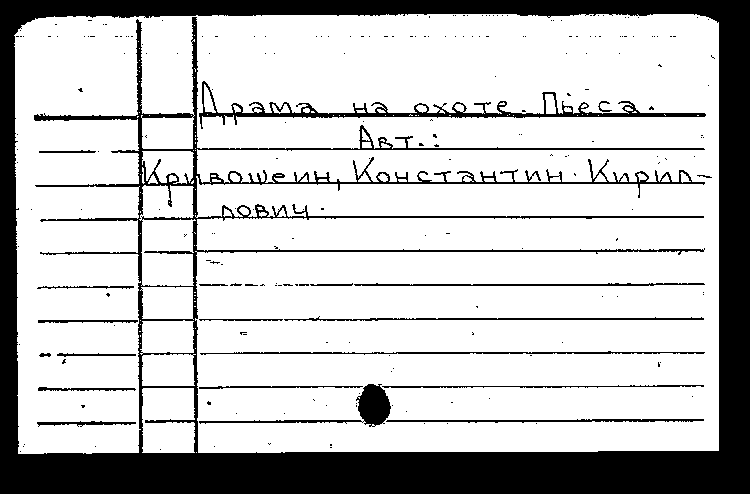 Драма на охоте. Пьеса.
Авт.:
Кривошеин, Константин Кирил-
лович.